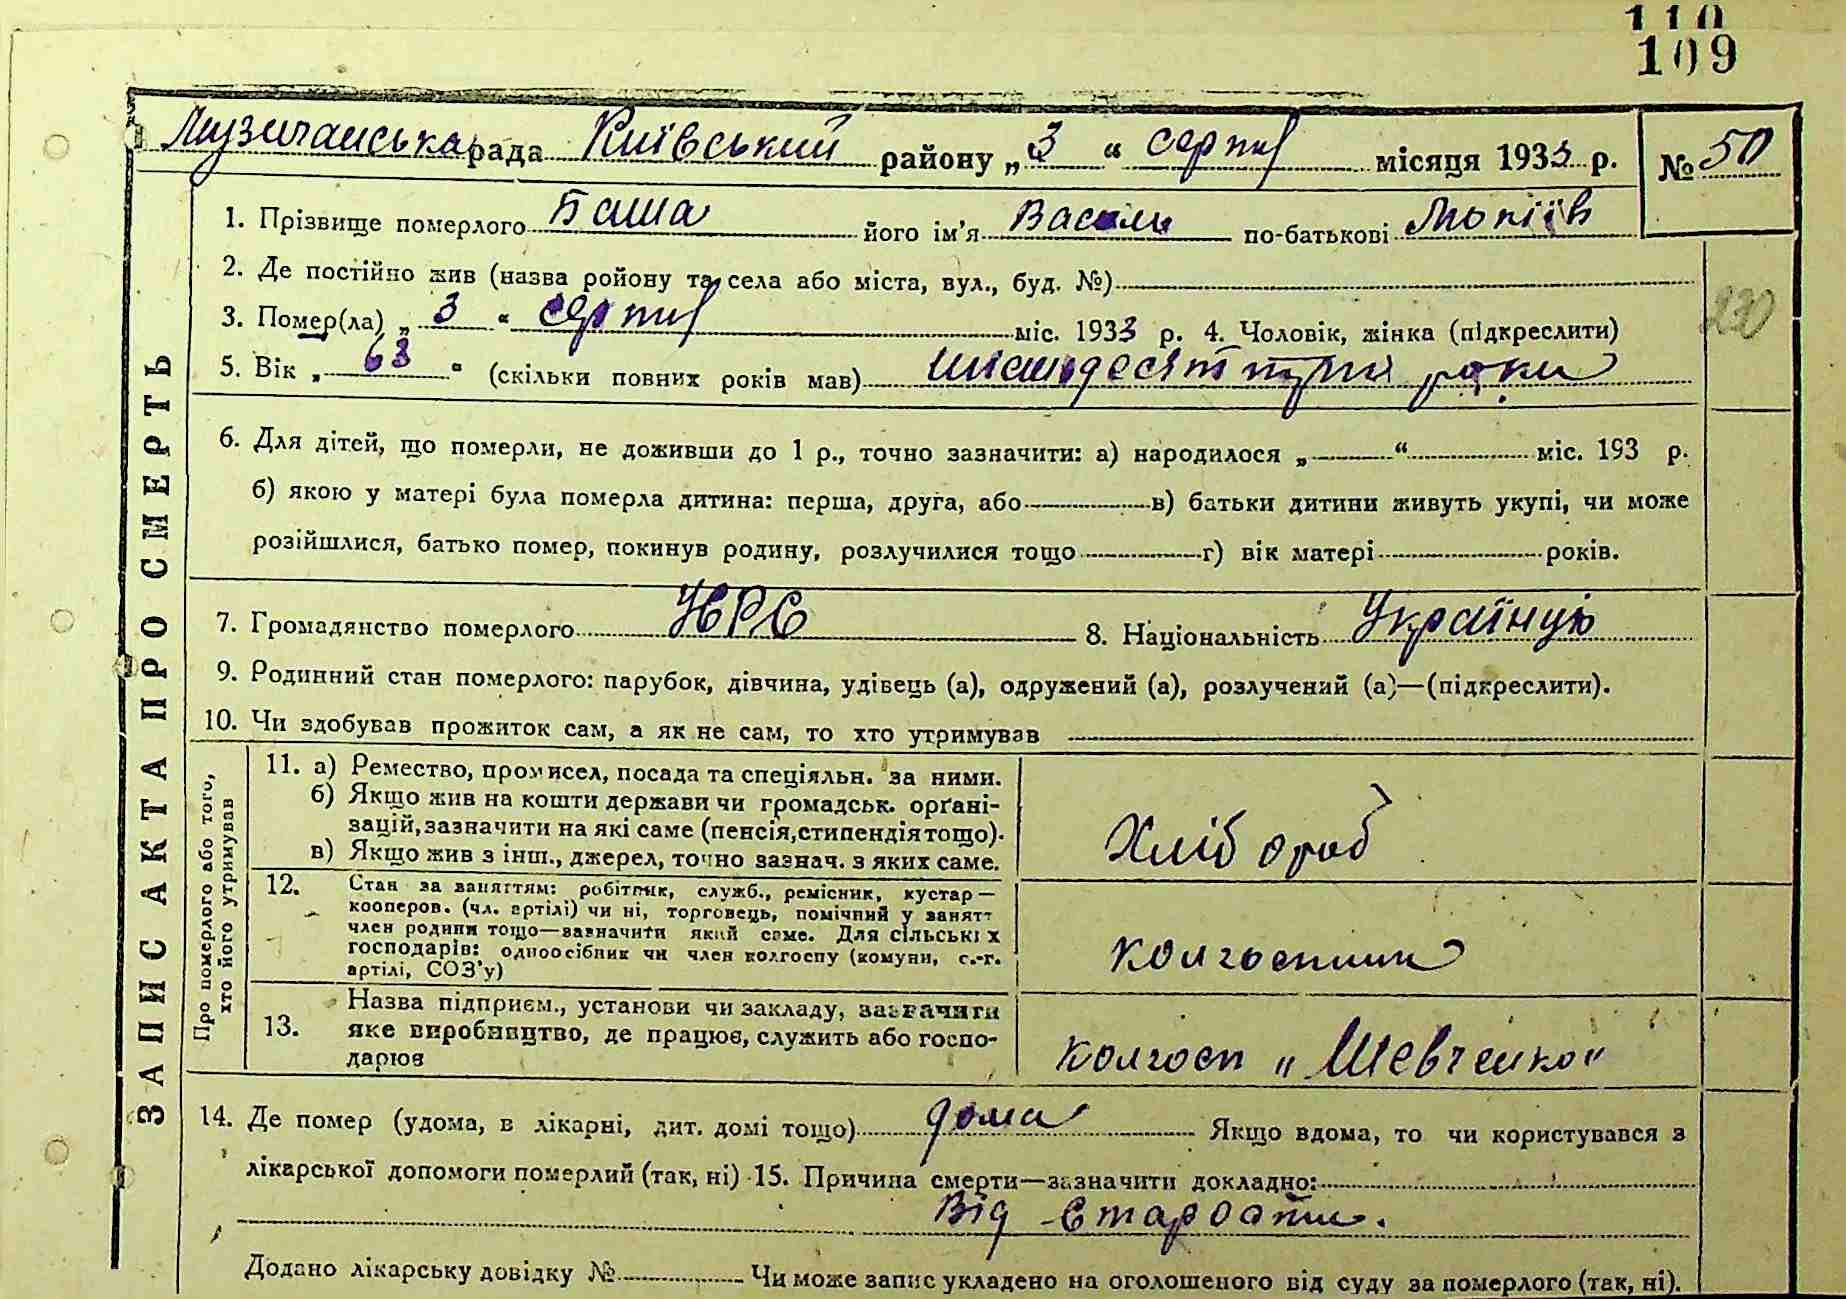 110
109
Музичанська рада Київський району „3“ серпня місяця 1933 р. № 50
1. Прізвище померлого Баша його ім'я Василь по-батькові
2. Де постійно жив (назва ройону та села або міста, вул., буд. №)
3. Помер(ла) „3“ серпня міс. 1933 р. 4. Чоловік, жінка (підкреслити)
230
5. Вік „63“ (скільки повних років мав) шисьдесят три роки
6. Для дітей, що померли, не доживши до 1 р., точно зазначити: а) народилося „ “ міс. 193 р.
б) якою у матері була померла дитина: перша, друга, або в) батьки дитини живуть укупі, чи може
розійшлися, батько помер, покинув родину, розлучилися тощо г) вік матері років.
7. Громадянство померлого УСРР 8. Національність Українць
9. Родинний стан померлого: парубок, дівчина, удівець (а), одружений (а), розлучений (а)—(підкреслити).
10. Чи здобував прожиток сам, а як не сам, то хто утримував
ЗАПИС АКТА ПРО СМЕРТЬ
Про померлого або того,
хто його утримував
11. а) Ремество, промисел, посада та спеціяльн. за ними.
б) Якщо жив на кошти держави чи громадськ. орґані-
зацій, зазначити на які саме (пенсія, стипендія тощо).
в) Якщо жив з інш., джерел, точно зазнач. з яких саме.
Хлібороб
12. Стан за заняттям: робітник, служб., ремісник, кустар—
кооперов. (чл. артілі) чи ні, торговець, помічний у занятт
член родини тощо—зазначити який саме. Для сільських
господарів: одноосібник чи член колгоспу (комуни, с.-г.
артілі, СОЗ'у)
колгоспник
13. Назва підприєм., установи чи закладу, зазначити
яке виробництво, де працює, служить або госпо-
дарює
колгосп „Шевченко"
14. Де помер (удома, в лікарні, дит. домі тощо) дома Якщо вдома, то чи користувався з
лікарської допомоги померлий (так, ні) 15. Причина смерти—зазначити докладно:
Від старости.
Додано лікарську довідку № Чи може запис укладено на оголошеного від суду за померлого (так, ні).